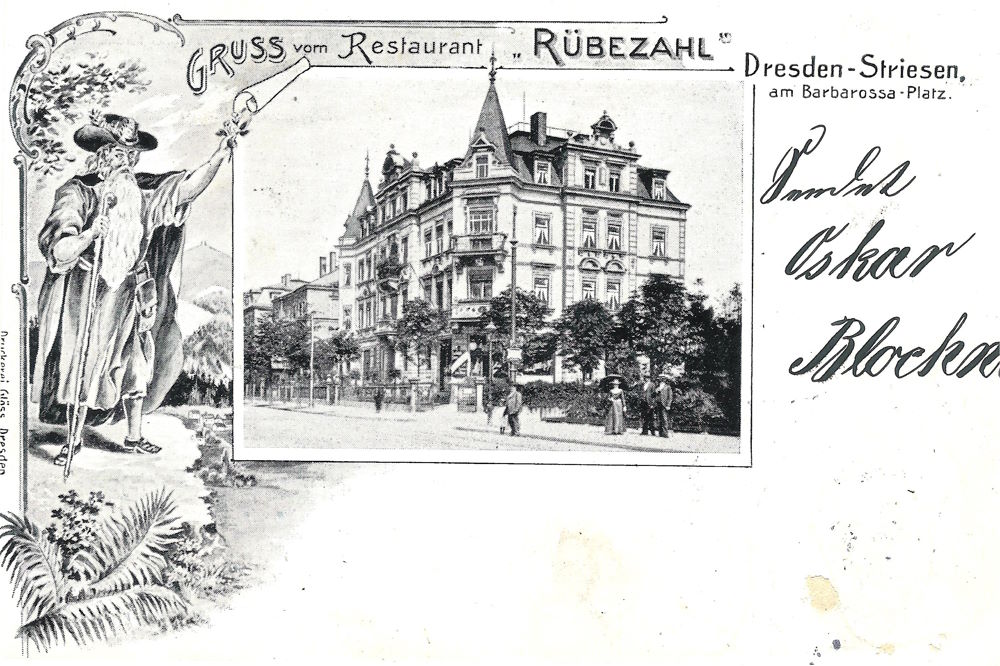 GRUSS vom Restaurant „RÜBEZAHL“
Dresden-Striesen,
am Barbarossa-Platz.
Sendet
Oskar
Blockn
Druckerei Glöss, Dresden